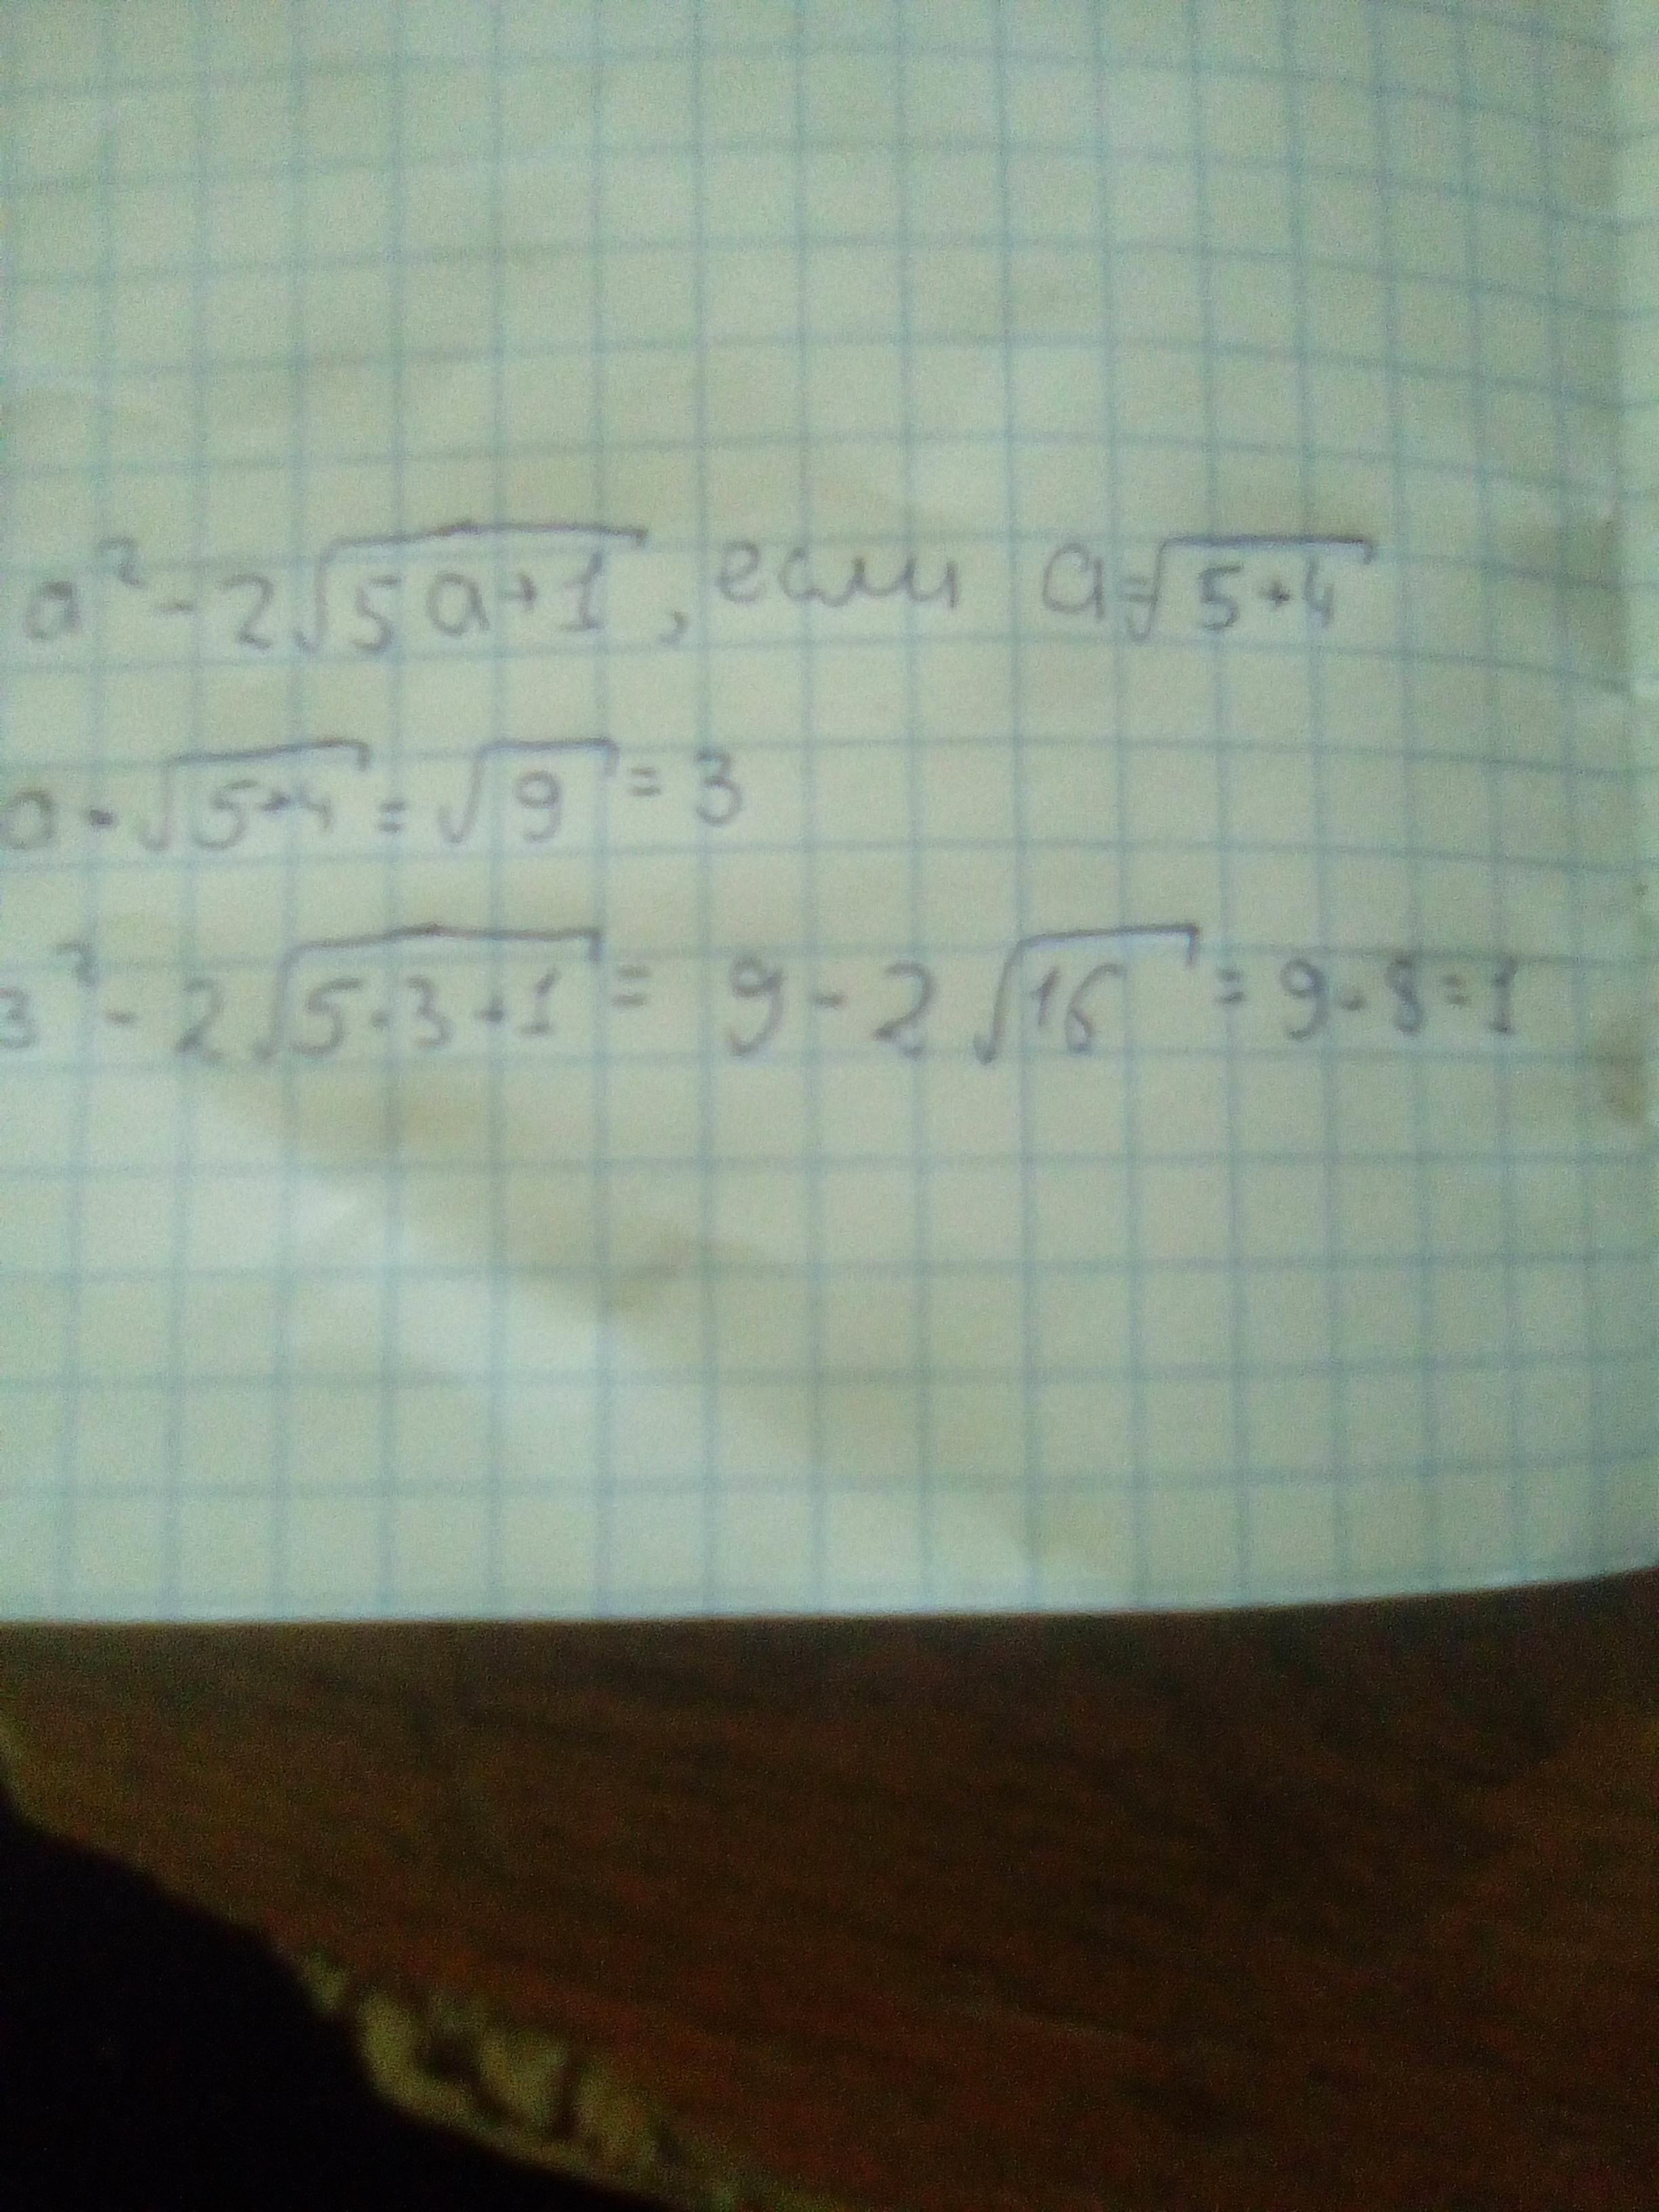 a² - 2√(5a+1), если a=√(5+4)
a = √(5+4) = √9 = 3
3² - 2√(5·3+1) = 9 - 2√16 = 9 - 8 = 1